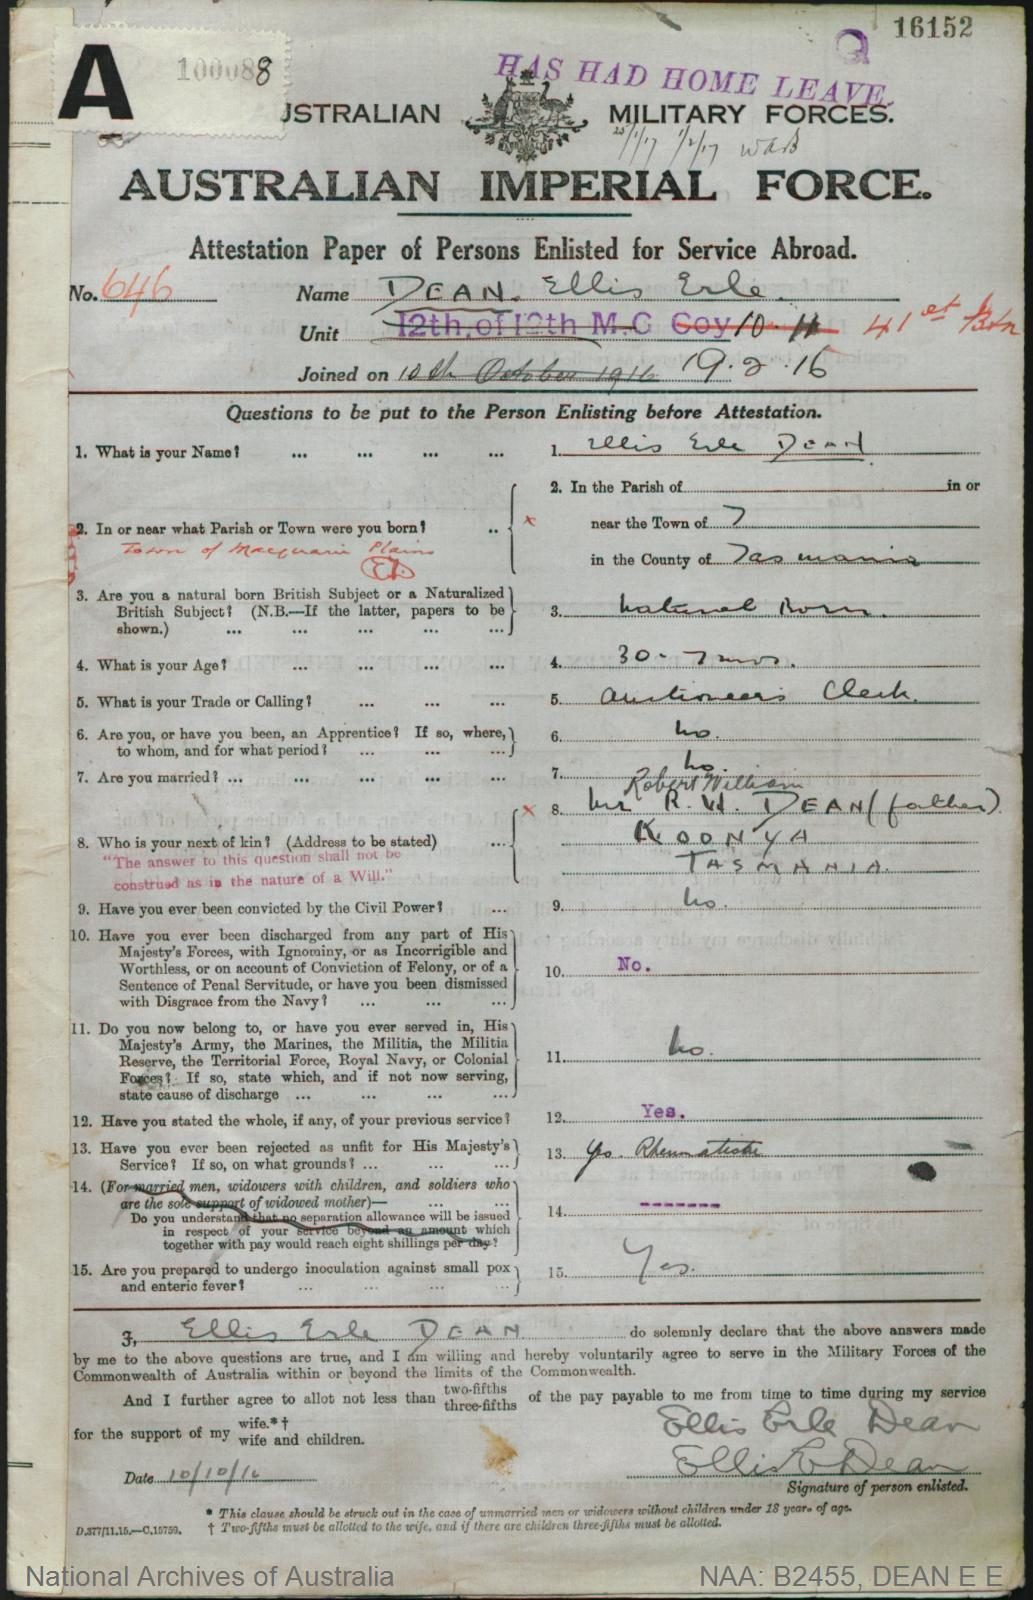 16152
A
100088
HAS HAD HOME LEAVE.
AUSTRALIAN MILITARY FORCES.
25/1/17 1/2/17
AUSTRALIAN IMPERIAL FORCE.
Attestation Paper of Persons Enlisted for Service Abroad.
No. 646 Name DEAN. Ellis Erle.
Unit 12th. of 12th M.G Coy 10. 11 41st Btn
Joined on 10th October 1916 19.2.16
Questions to be put to the Person Enlisting before Attestation.
1. What is your Name? ... ... ... ... 1. Ellis Erle DEAN
2. In the Parish of in or
2. In or near what Parish or Town were you born? .. x near the Town of 7
Town of Macquarie Plains
ED
in the County of Tasmania
3. Are you a natural born British Subject or a Naturalized
British Subject? (N.B.—If the latter, papers to be
shown.) ... ... ... ... ... 3. Natural Born.
4. What is your Age? ... ... ... ... 4. 30 - 7 mos.
5. What is your Trade or Calling? ... ... ... 5. Auctioneers Clerk.
6. Are you, or have you been, an Apprentice? If so, where,
to whom, and for what period? ... ... ... 6. No.
7. Are you married? ... ... ... ... ... 7. No.
Robert William
x 8. Mr R. W. DEAN (father).
8. Who is your next of kin? (Address to be stated) ... KOONYA
"The answer to this question shall not be
construed as in the nature of a Will."
TASMANIA.
9. Have you ever been convicted by the Civil Power? ... 9. No.
10. Have you ever been discharged from any part of His
Majesty's Forces, with Ignominy, or as Incorrigible and
Worthless, or on account of Conviction of Felony, or of a
Sentence of Penal Servitude, or have you been dismissed
with Disgrace from the Navy? ... ... ... 10. No.
11. Do you now belong to, or have you ever served in, His
Majesty's Army, the Marines, the Militia, the Militia
Reserve, the Territorial Force, Royal Navy, or Colonial
Forces? If so, state which, and if not now serving,
state cause of discharge ... ... ... ... 11. No.
12. Have you stated the whole, if any, of your previous service? 12. Yes.
13. Have you ever been rejected as unfit for His Majesty's
Service? If so, on what grounds? ... ... ... 13. Yes.
14. (For married men, widowers with children, and soldiers who
are the sole support of widowed mother)— ... ...
Do you understand that no separation allowance will be issued
in respect of your service beyond an amount which
together with pay would reach eight shillings per day? 14. -------
15. Are you prepared to undergo inoculation against small pox
and enteric fever? ... ... ... ... 15. Yes.
I, Ellis Erle DEAN do solemnly declare that the above answers made
by me to the above questions are true, and I am willing and hereby voluntarily agree to serve in the Military Forces of the
Commonwealth of Australia within or beyond the limits of the Commonwealth.
And I further agree to allot not less than two-fifths three-fifths of the pay payable to me from time to time during my service
for the support of my wife.*† wife and children.
Ellis Erle Dean
Date 10/10/16 Ellis E Dean
Signature of person enlisted.
* This clause should be struck out in the case of unmarried men or widowers without children under 18 years of age.
D.377/11.15.—C.15759. † Two-fifths must be allotted to the wife, and if there are children three-fifths must be allotted.
National Archives of Australia NAA: B2455, DEAN E E